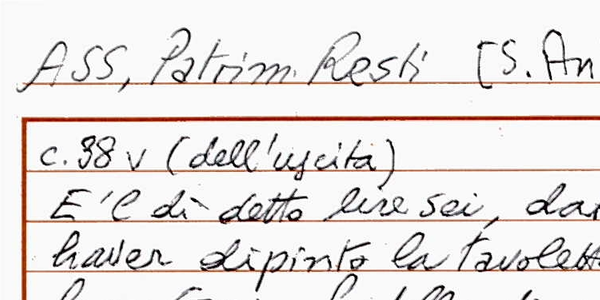 ASS, Patrim. Resti [S. An
c. 38 v (dell'uscita)
E 'l dì detto lire sei, da
haver dipinto la tavolett